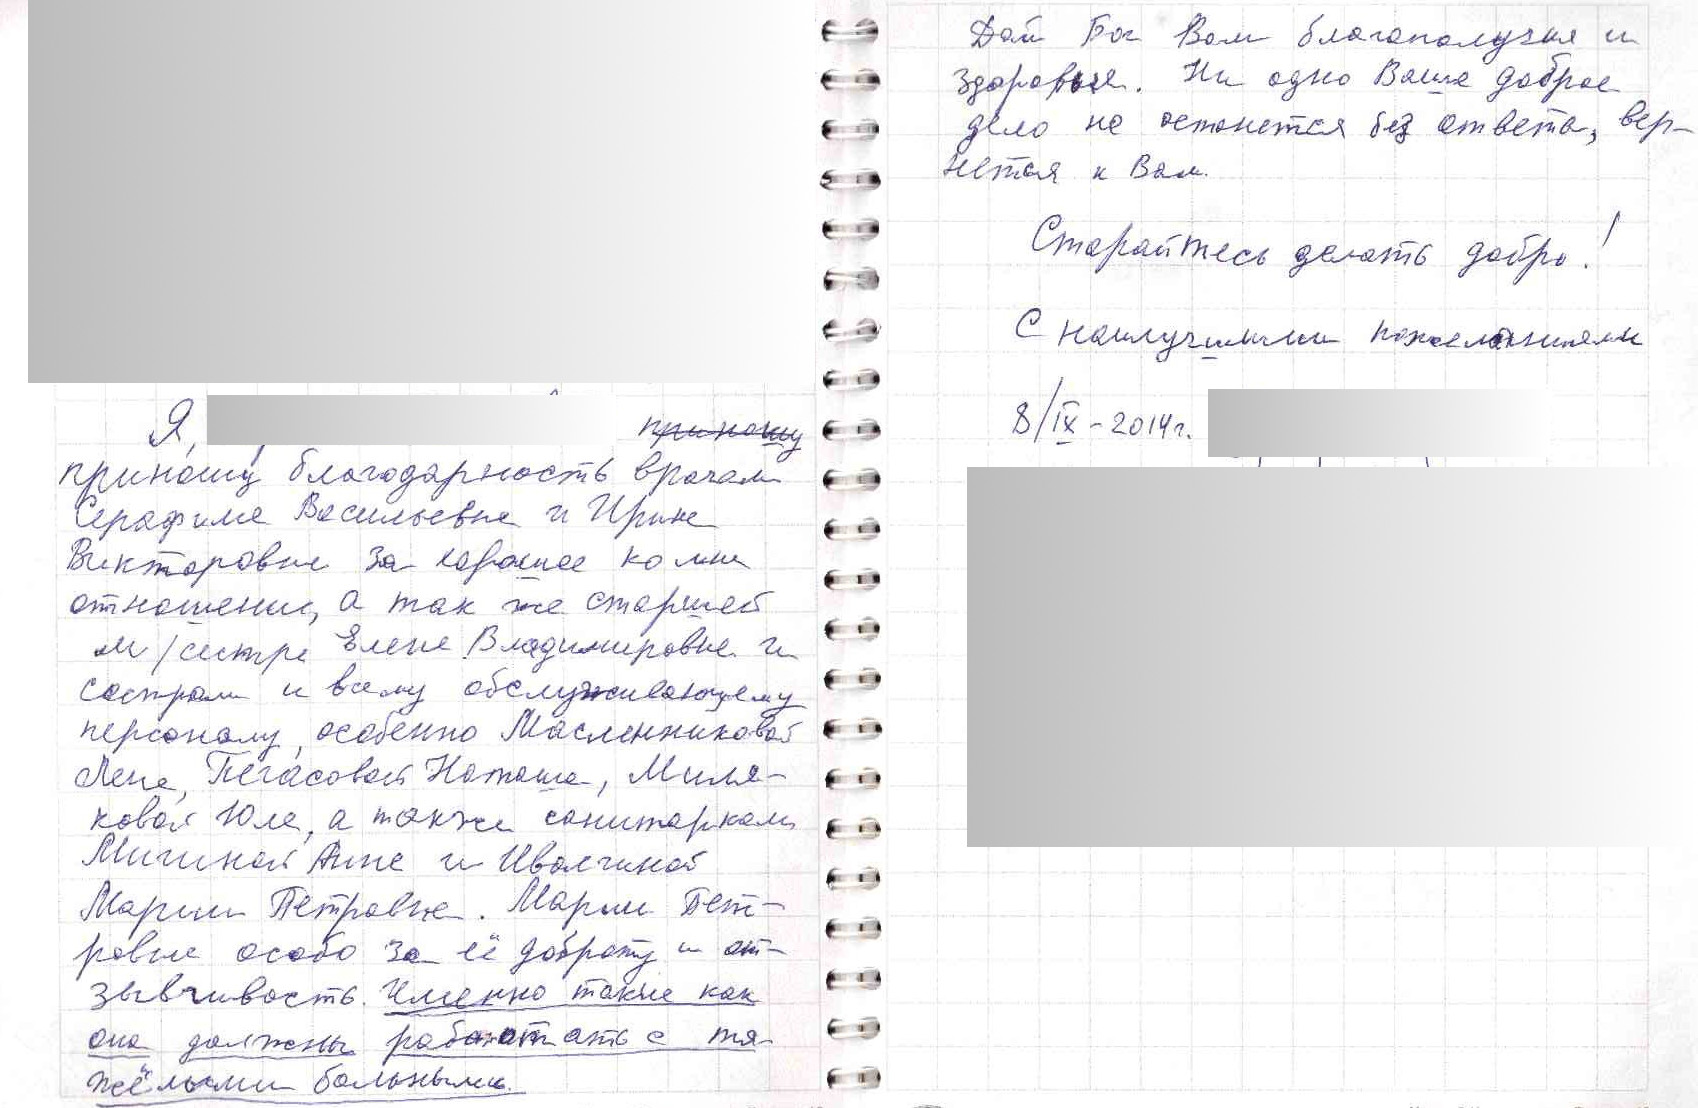 Я,
приношу
приношу благодарность врачам
Серафиме Васильевне и Ирине
Викторовне за хорошее ко мне
отношение, а так же старшей
м/сестре Елене Владимировне и
сестрам и всему обслуживающему
персоналу, особенно Масленниковой
Лене, Пегасовой Наташе, Миля-
ковой Юле, а также санитаркам
Мигиной Анне и Иволгиной
Марии Петровне. Марии Пет-
ровне особо за её доброту и от-
зывчивость. Именно такие как
она должны работать с тя
жёлыми больными.
Дай Бог Вам благополучия и
здоровья. Ни одно Ваше доброе
дело не останется без ответа, вер-
нется к Вам.
Старайтесь делать добро!
С наилучшими пожеланиями
8/IX-2014г.